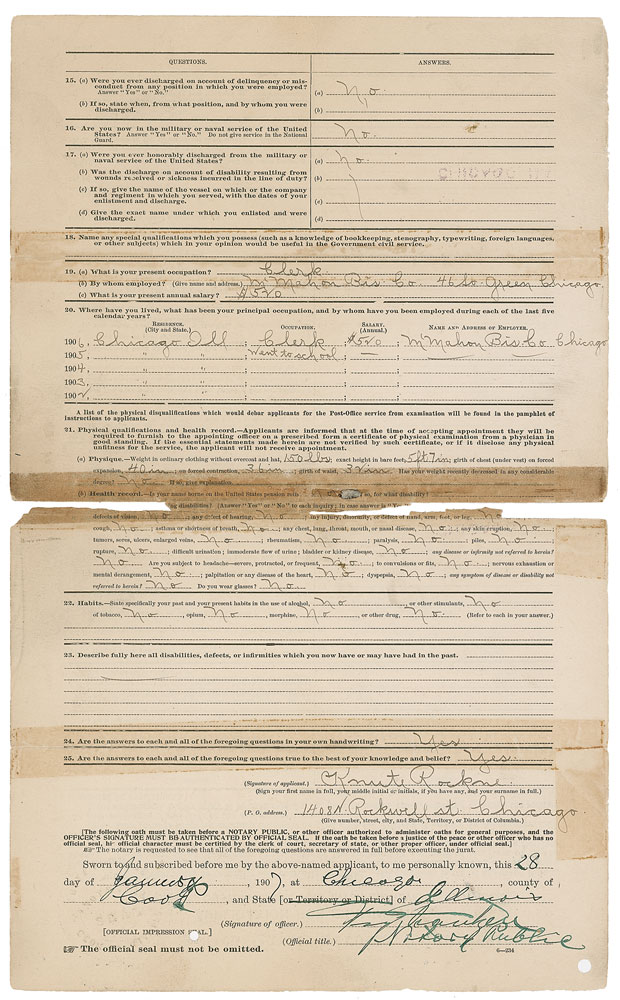 QUESTIONS. ANSWERS.
15. (a) Were you ever discharged on account of delinquency or mis-
conduct from any position in which you were employed?
Answer "Yes" or "No." (a) No.
(b) If so, state when, from what position, and by whom you were
discharged. (b)
16. Are you now in the military or naval service of the United
States? Answer "Yes" or "No." Do not give service in the National
Guard. No.
17. (a) Were you ever honorably discharged from the military or
naval service of the United States? (a) No.
(b) Was the discharge on account of disability resulting from
wounds received or sickness incurred in the line of duty? (b)
(c) If so, give the name of the vessel on which or the company
and regiment in which you served, with the dates of your
enlistment and discharge. (c)
(d) Give the exact name under which you enlisted and were
discharged. (d)
18. Name any special qualifications which you possess (such as a knowledge of bookkeeping, stenography, typewriting, foreign languages,
or other subjects) which in your opinion would be useful in the Government civil service.
19. (a) What is your present occupation? Clerk
(b) By whom employed? (Give name and address) McMahon Bis. Co. 46 So. Green Chicago.
(c) What is your present annual salary? $520
20. Where have you lived, what has been your principal occupation, and by whom have you been employed during each of the last five
calendar years?
RESIDENCE. OCCUPATION. SALARY. NAME AND ADDRESS OF EMPLOYER.
(City and State.) (Annual.)
1906, Chicago Ill ; Clerk ; $520 ; McMahon Bis. Co. Chicago
1905, " " ; Went to school ; — ;
1904, " " ; ; ;
1903, " " ; ; ;
1902, " " ; ; ;
A list of the physical disqualifications which would debar applicants for the Post-Office service from examination will be found in the pamphlet of
instructions to applicants.
21. Physical qualifications and health record.—Applicants are informed that at the time of accepting appointment they will be
required to furnish to the appointing officer on a prescribed form a certificate of physical examination from a physician in
good standing. If the essential statements made herein are not verified by such certificate, or if it disclose any physical
unfitness for the service, the applicant will not receive appointment.
(a) Physique.—Weight in ordinary clothing without overcoat and hat, 150 lbs; exact height in bare feet, 5ft 7in; girth of chest (under vest) on forced
expansion, 40 in; on forced contraction, 36 in; girth of waist, 32 in. Has your weight recently decreased in any considerable
degree? No If so, give explanation.
(b) Health record.—Is your name borne on the United States pension rolls so, for what disability?
ng disabilities? (Answer "Yes" or "No" to each inquiry; in case answer is "Ye
defects of vision, any defect of hearing, No any injury, disorder, or defect of hand, arm, foot, or leg,
cough, No; asthma or shortness of breath, No; any chest, lung, throat, mouth, or nasal disease, No; any skin eruption, No;
tumors, sores, ulcers, enlarged veins, No; rheumatism, No; paralysis, No; piles, No;
rupture, No; difficult urination; immoderate flow of urine; bladder or kidney disease, No; any disease or infirmity not referred to herein?
No Are you subject to headache—severe, protracted, or frequent, No; to convulsions or fits, No; nervous exhaustion or
mental derangement, No; palpitation or any disease of the heart, No; dyspepsia, No; any symptom of disease or disability not
referred to herein? No Do you wear glasses? No
22. Habits.—State specifically your past and your present habits in the use of alcohol, No, or other stimulants, No
of tobacco, No, opium, No, morphine, No, or other drug, No. (Refer to each in your answer.)
23. Describe fully here all disabilities, defects, or infirmities which you now have or may have had in the past.
24. Are the answers to each and all of the foregoing questions in your own handwriting? Yes
25. Are the answers to each and all of the foregoing questions true to the best of your knowledge and belief? Yes.
(Signature of applicant.) Knute Rockne.
(Sign your first name in full, your middle initial or initials, if you have any, and your surname in full.)
(P. O. address.) 1408 N. Rockwell st. Chicago
(Give number, street, city, and State, Territory, or District of Columbia.)
[The following oath must be taken before a NOTARY PUBLIC, or other officer authorized to administer oaths for general purposes, and the
OFFICER'S SIGNATURE MUST BE AUTHENTICATED BY OFFICIAL SEAL. If the oath be taken before a justice of the peace or other officer who has no
official seal, his official character must be certified by the clerk of court, secretary of state, or other proper officer, under official seal.]
The notary is requested to see that all of the foregoing questions are answered in full before executing the jurat.
Sworn to and subscribed before me by the above-named applicant, to me personally known, this 28
day of January, 1907, at Chicago, county of
Cook, and State [or Territory or District] of Illinois
(Signature of officer.)
[OFFICIAL IMPRESSION SEAL.] (Official title.) Notary Public
The official seal must not be omitted. 6—234